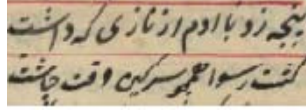 پنجه زد با ادم از نازی که داشت
گشت رسوا همچو سرکین وقت چاشت